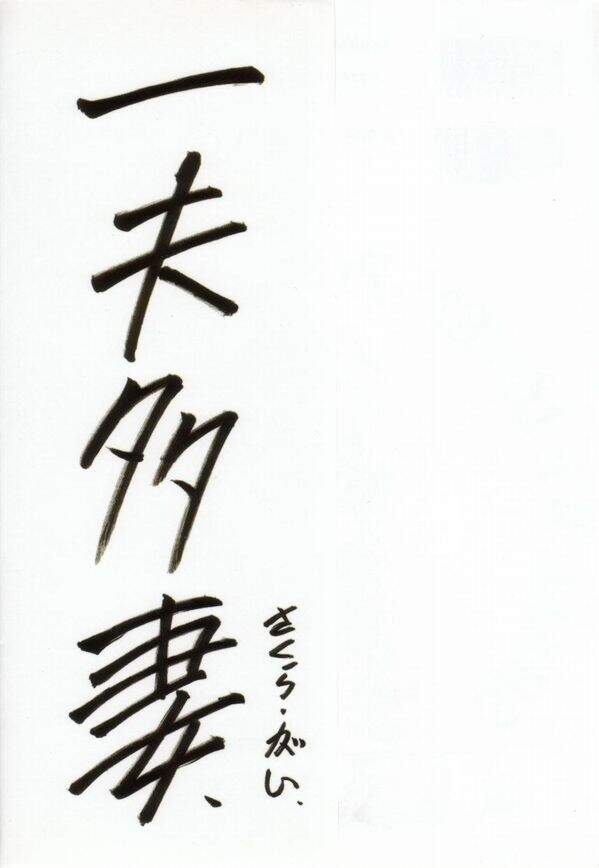 一夫多妻、
さくら・がい.